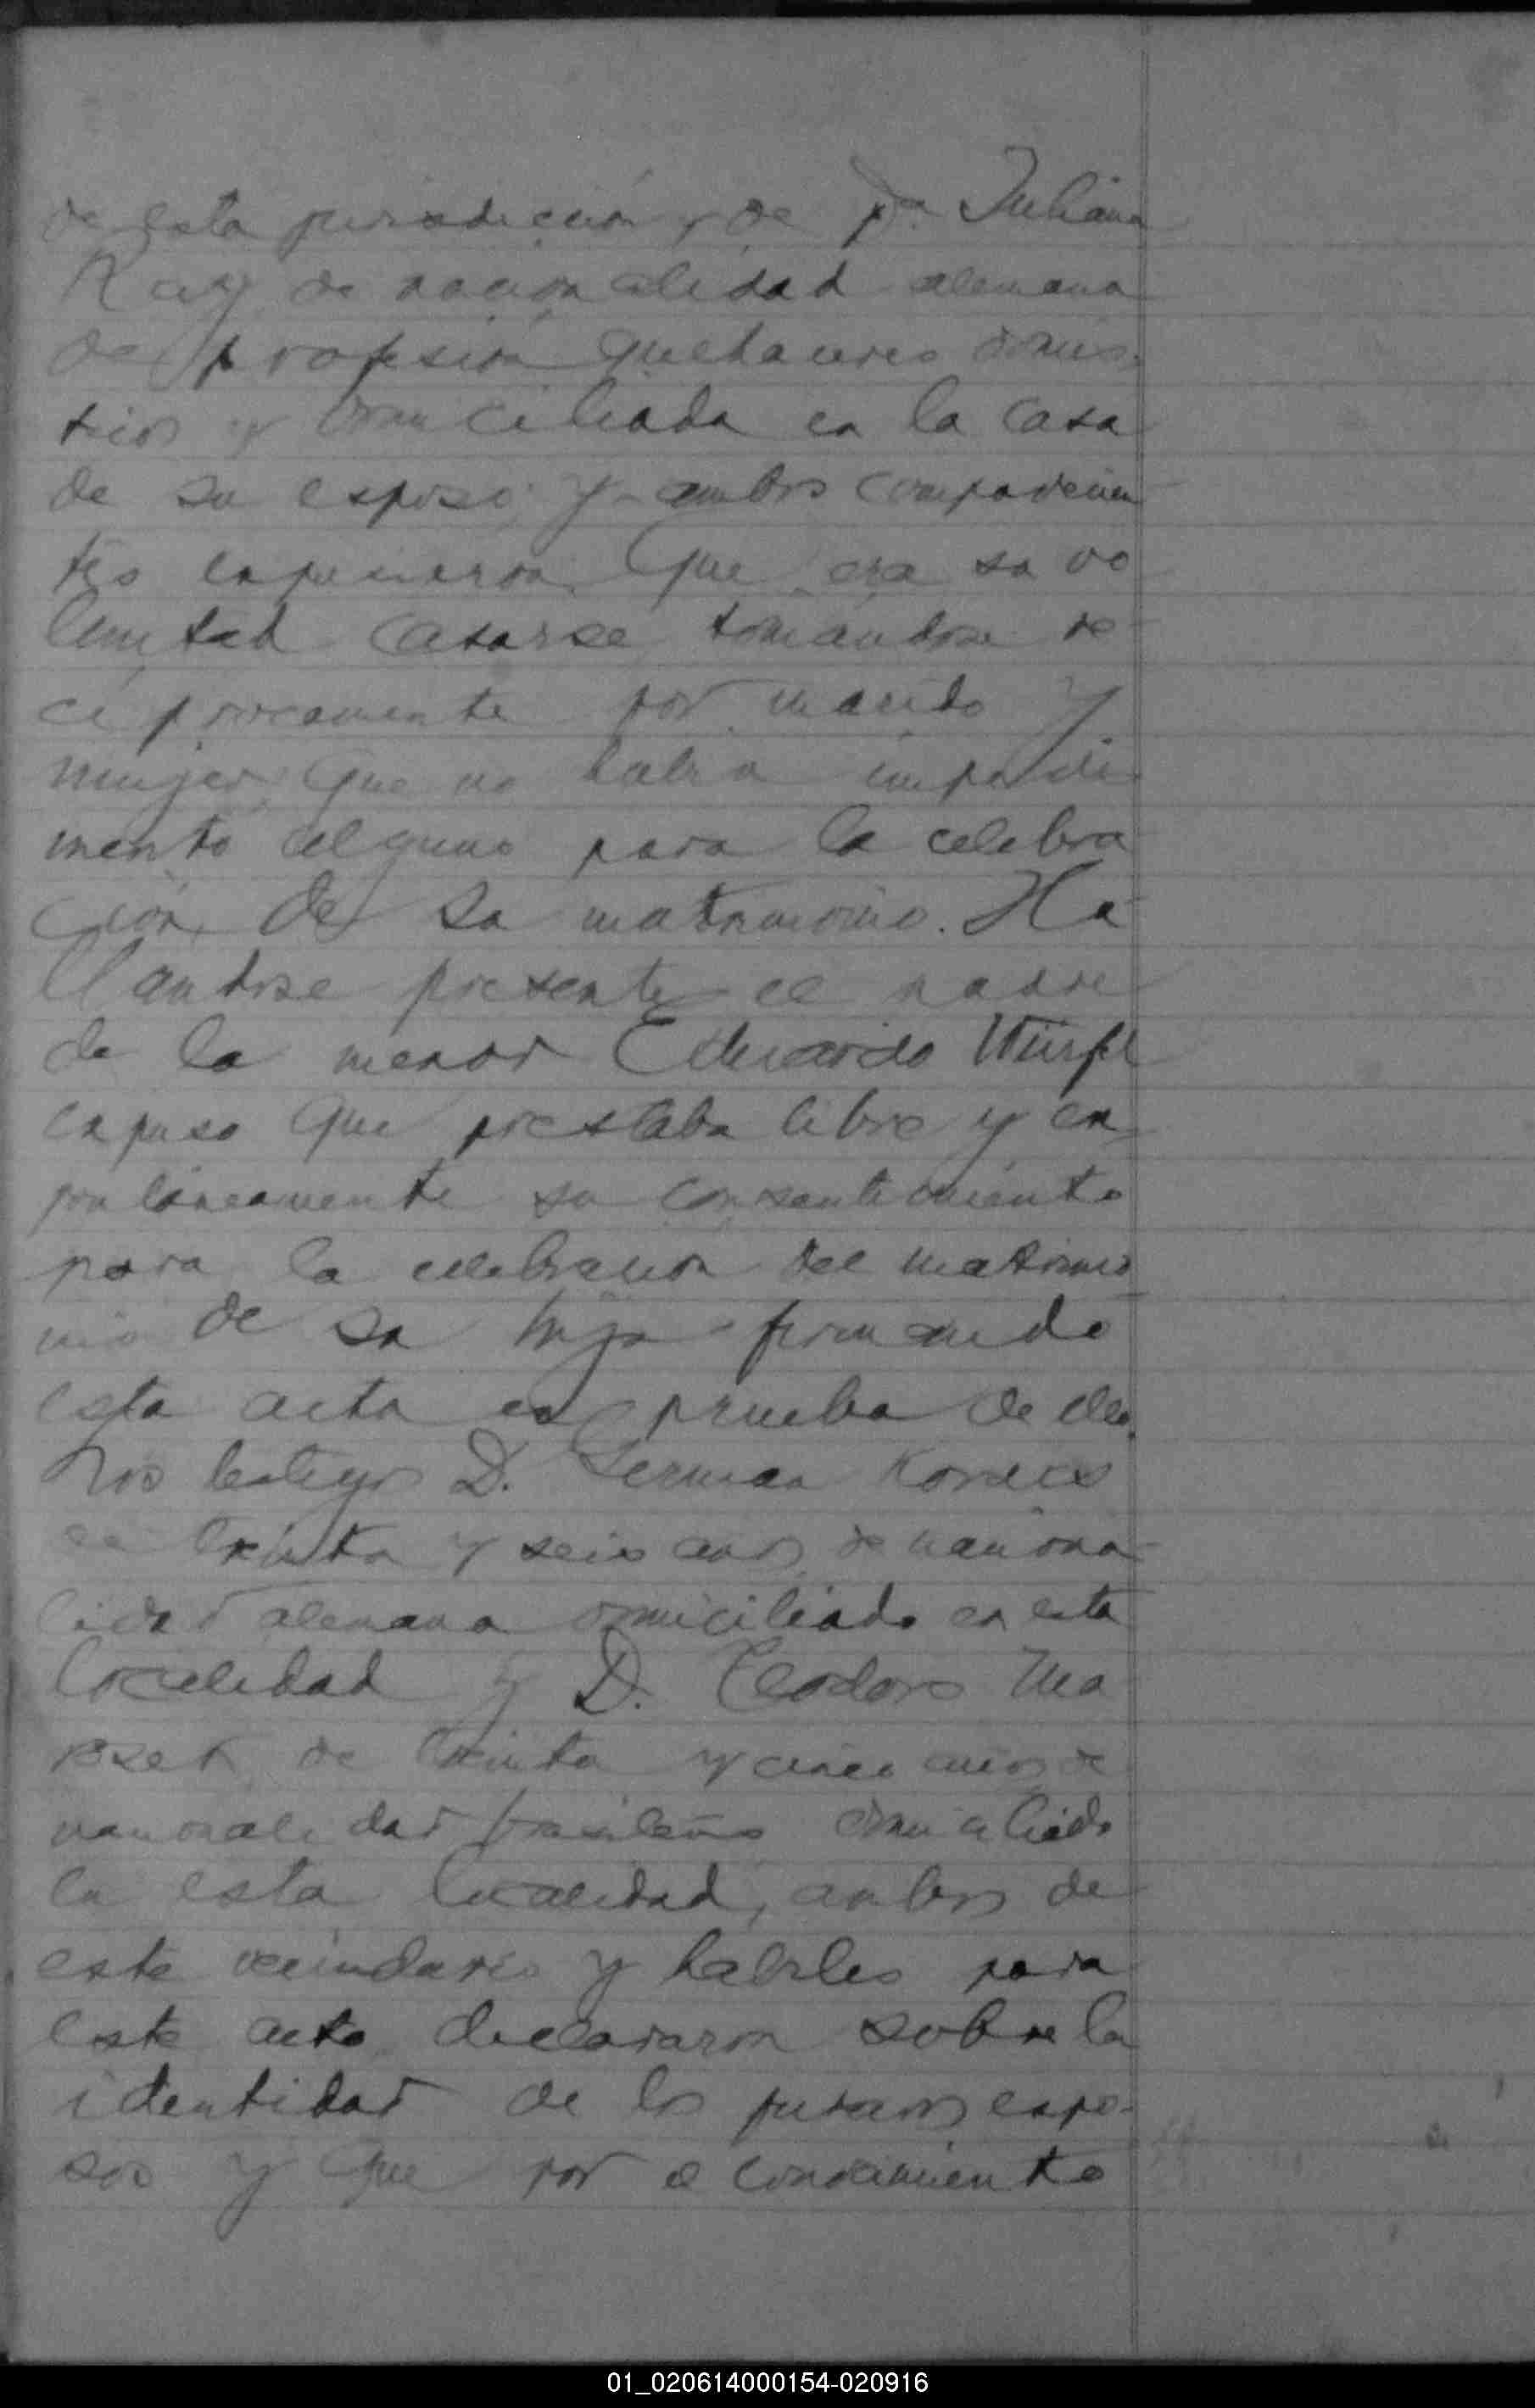 de esta jurisdicción y de Da. Juliana
Ray de nacionalidad alemana
de profesión quehaceres domés-
ticos y domiciliada en la casa
de su esposo; y ambos comparecien
tes expusieron Que era su vo
luntad casarse, tomándose re
ciprocamente por marido y
mujer; Que no había impedi-
mento alguno para la celebra
ción de su matrimonio. Ha
llandose presente el padre
de la menor Eduardo Würfel
expuso que prestaba libre y es
pontáneamente su consentimiento
para la celebracion del matrimo
nio de su hija firmando
esta acta en prueba de ello.
Los testigos D. German
de treinta y seis años, de naciona
lidad alemana domiciliado en esta
localidad y D. Teodoro Ma
de treinta y cinco años de
nacionalidad brasileño domiciliado
en esta localidad, ambos de
este vecindario y habiles para
este acto declararon sobre la
identidad de los futuros espo-
sos y que por el conocimiento
01_020614000154-020916